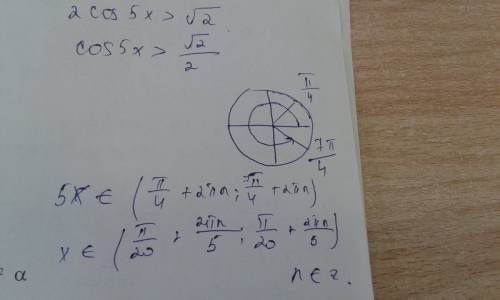 2cos5x > √2
cos5x > √2/2
π/4
7π/4
5x ∈ (π/4 + 2πn; 7π/4 + 2πn)
x ∈ (π/20 + 2πn/5; π/20 + 2πn/5)
n ∈ z.
a